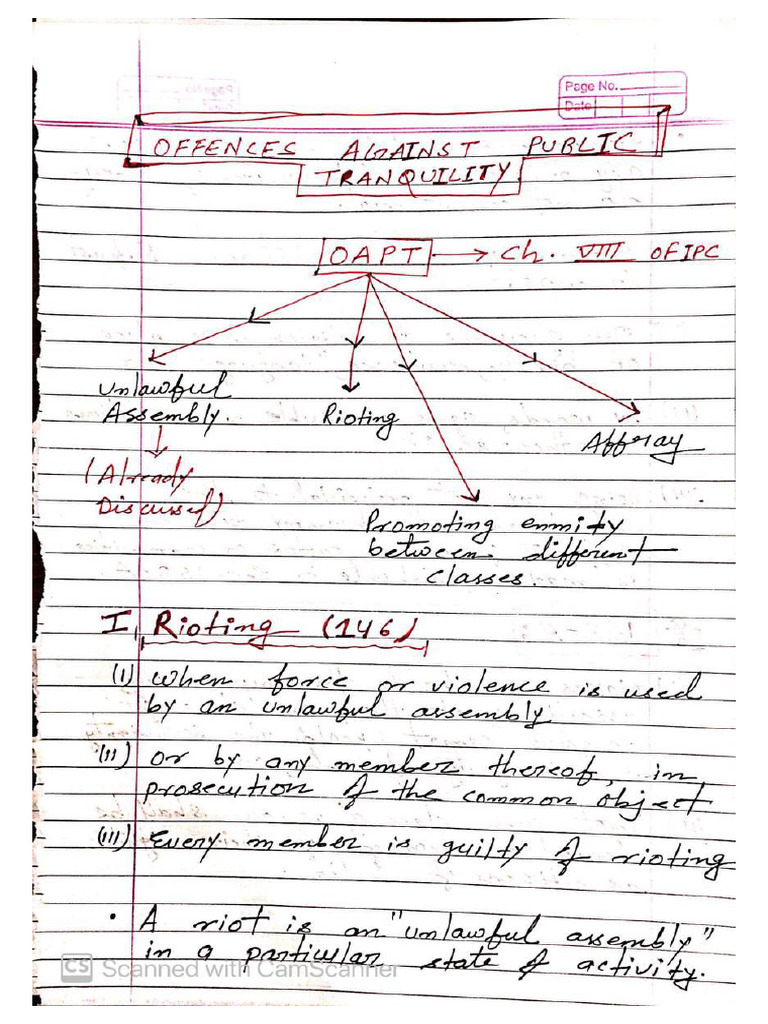 Page No.
Date
OFFENCES AGAINST PUBLIC
TRANQUILITY
OAPT → Ch. VIII OF IPC
Unlawful
Assembly.
Rioting
Affray
(Already
Discussed)
Promoting enmity
between different
classes.
I, Rioting (146)
(i) when force or violence is used
by an unlawful assembly
(ii) or by any member thereof, in
prosecution of the common object
(iii) Every member is guilty of rioting
• A riot is an "unlawful assembly"
in a particular state of activity.
CS Scanned with CamScanner